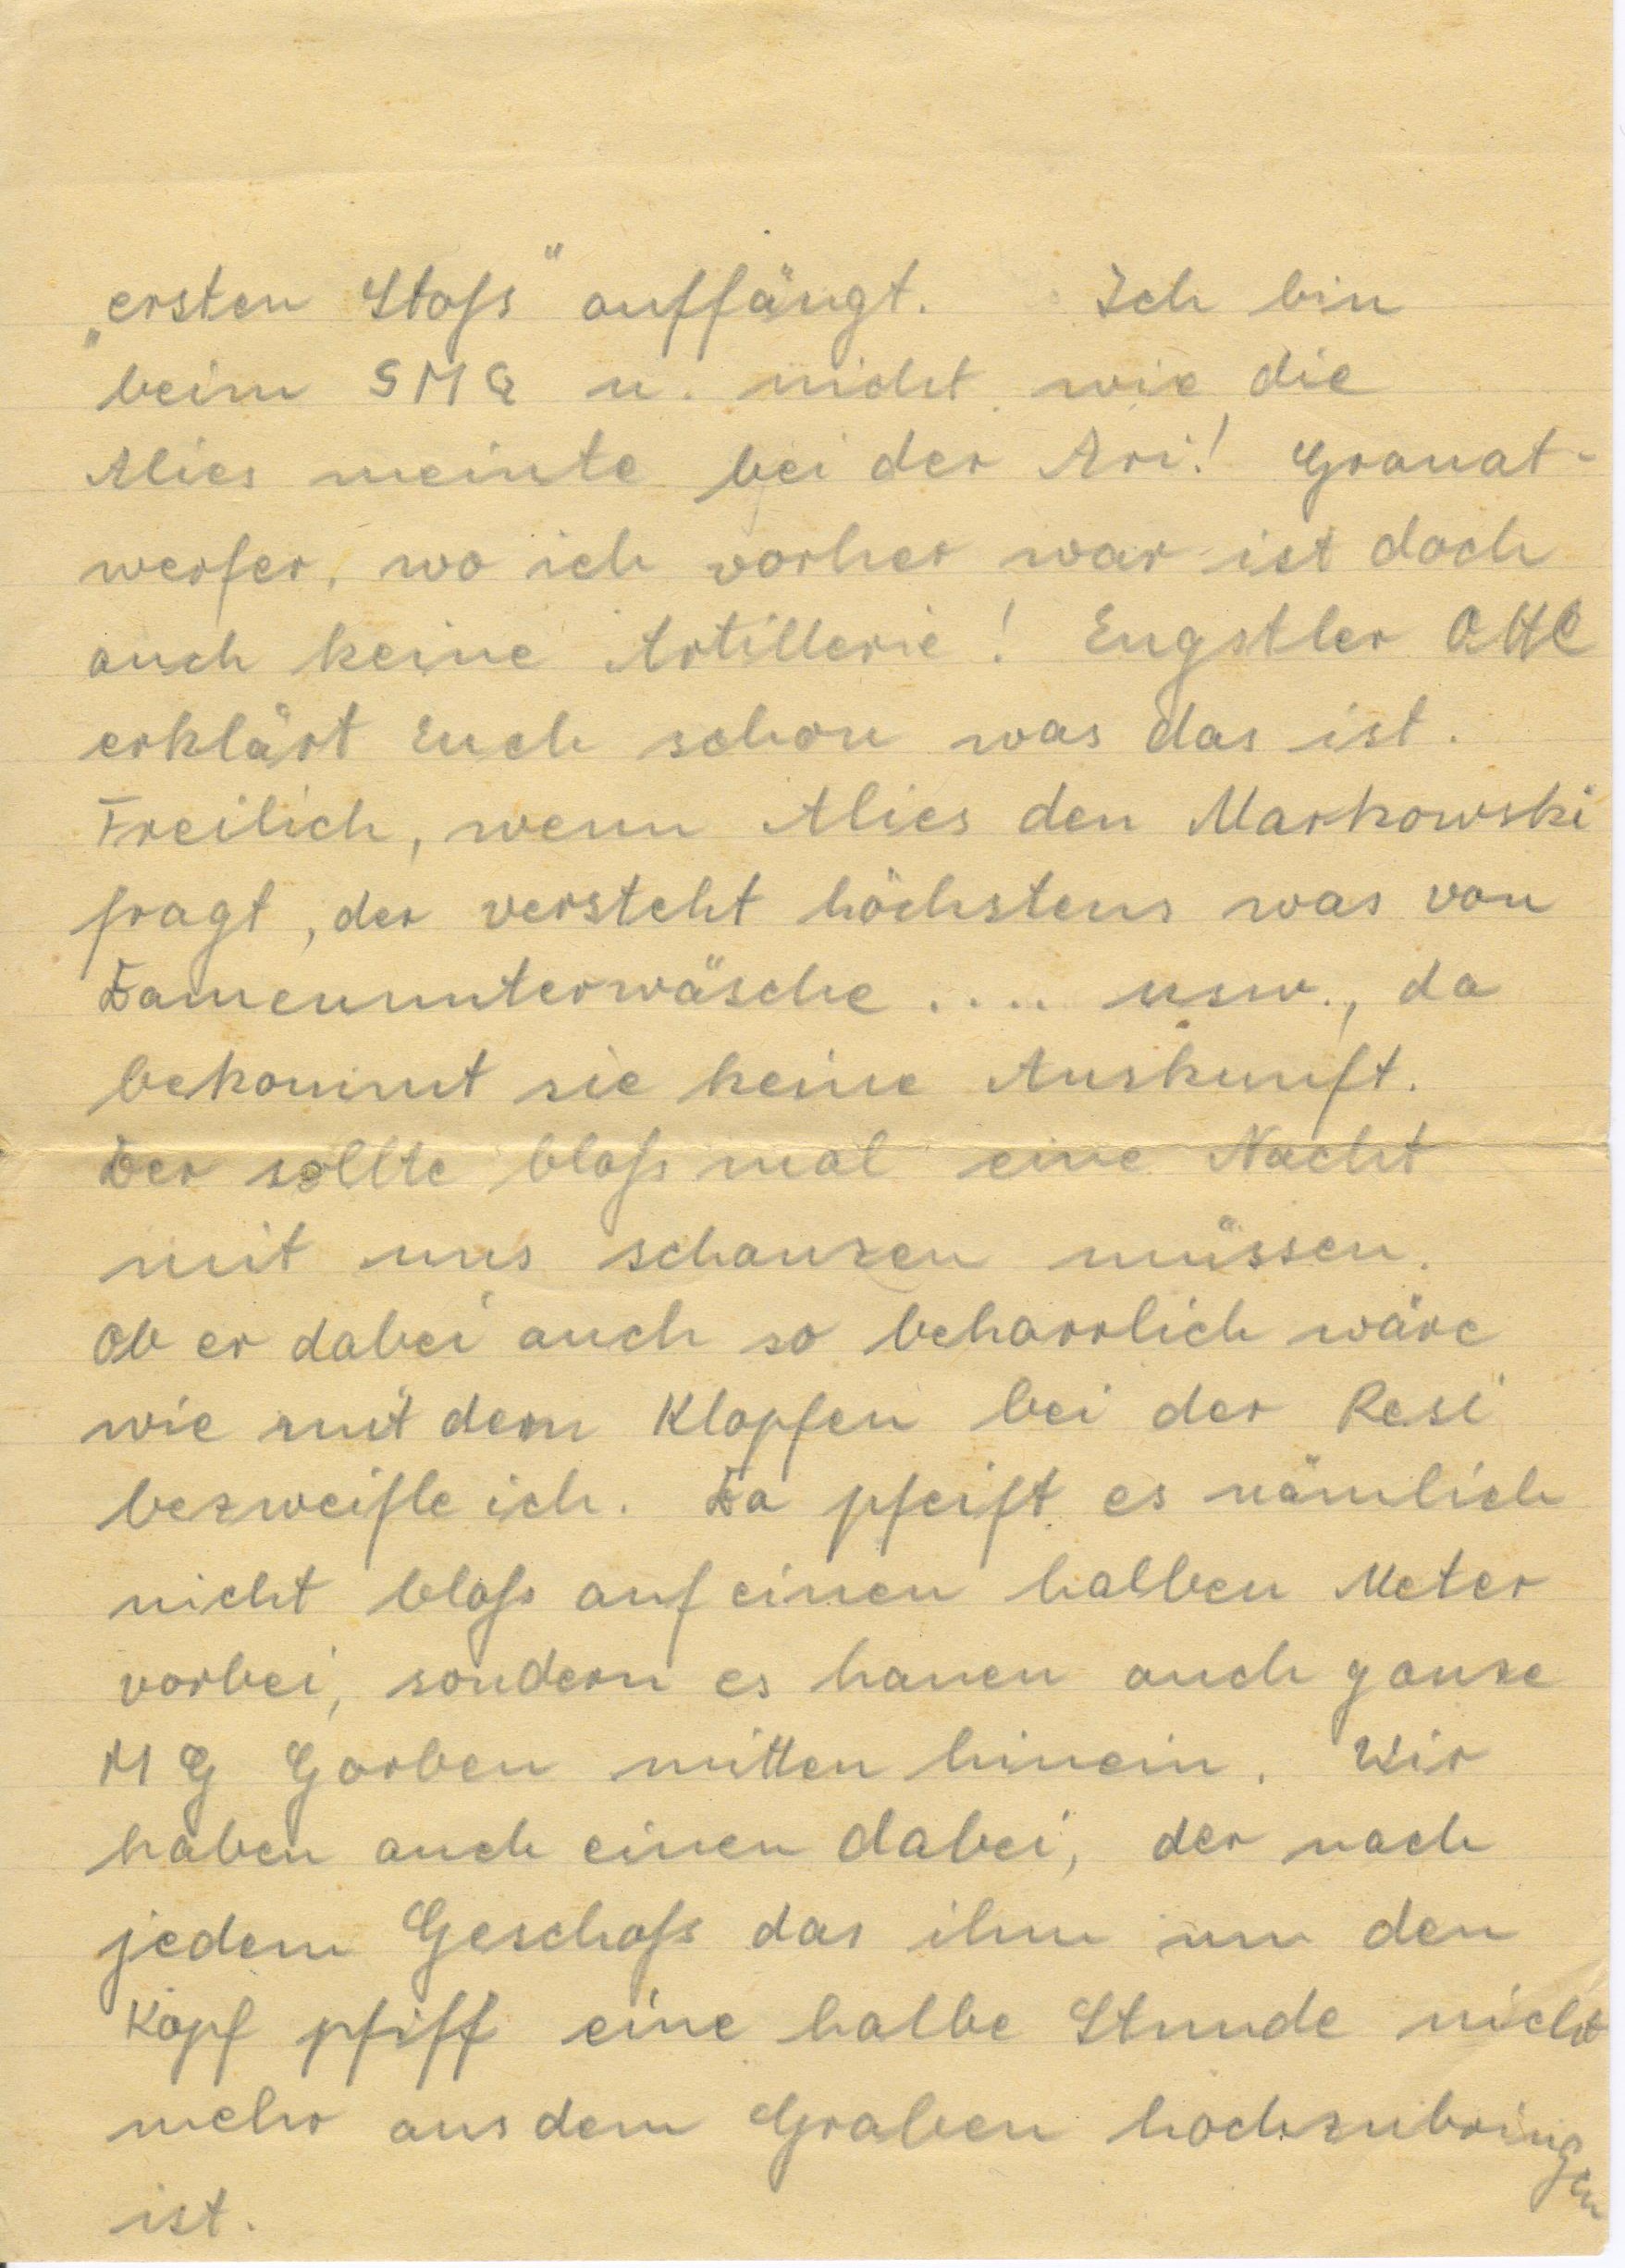 „ersten Stoß" auffängt. Ich bin
beim SMG u. nicht wie die
Alies meinte bei der Ari! Granat-
werfer, wo ich vorher war ist doch
auch keine Artillerie! Engstler Otto
erklärt Euch schon was das ist.
Freilich, wenn Alies den Markowski
fragt, der versteht höchstens was von
Damenunterwäsche .... usw., da
bekommt sie keine Auskunft.
Der sollte bloß mal eine Nacht
mit uns schanzen müssen.
Ob er dabei auch so beharrlich wäre
wie mit dem Klopfen bei der Resi
bezweifle ich. Da pfeift es nämlich
nicht bloß auf einen halben Meter
vorbei, sondern es hauen auch ganze
MG Garben mitten hinein. Wir
haben auch einen dabei, der nach
jedem Geschoß das ihm um den
Kopf pfiff eine halbe Stunde nicht
mehr aus dem Graben hochzubringen
ist.